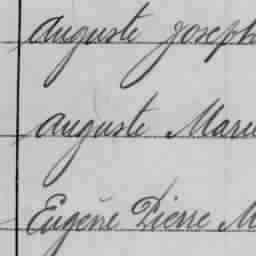 Auguste Joseph
Auguste Mari
Eugène Pierre M